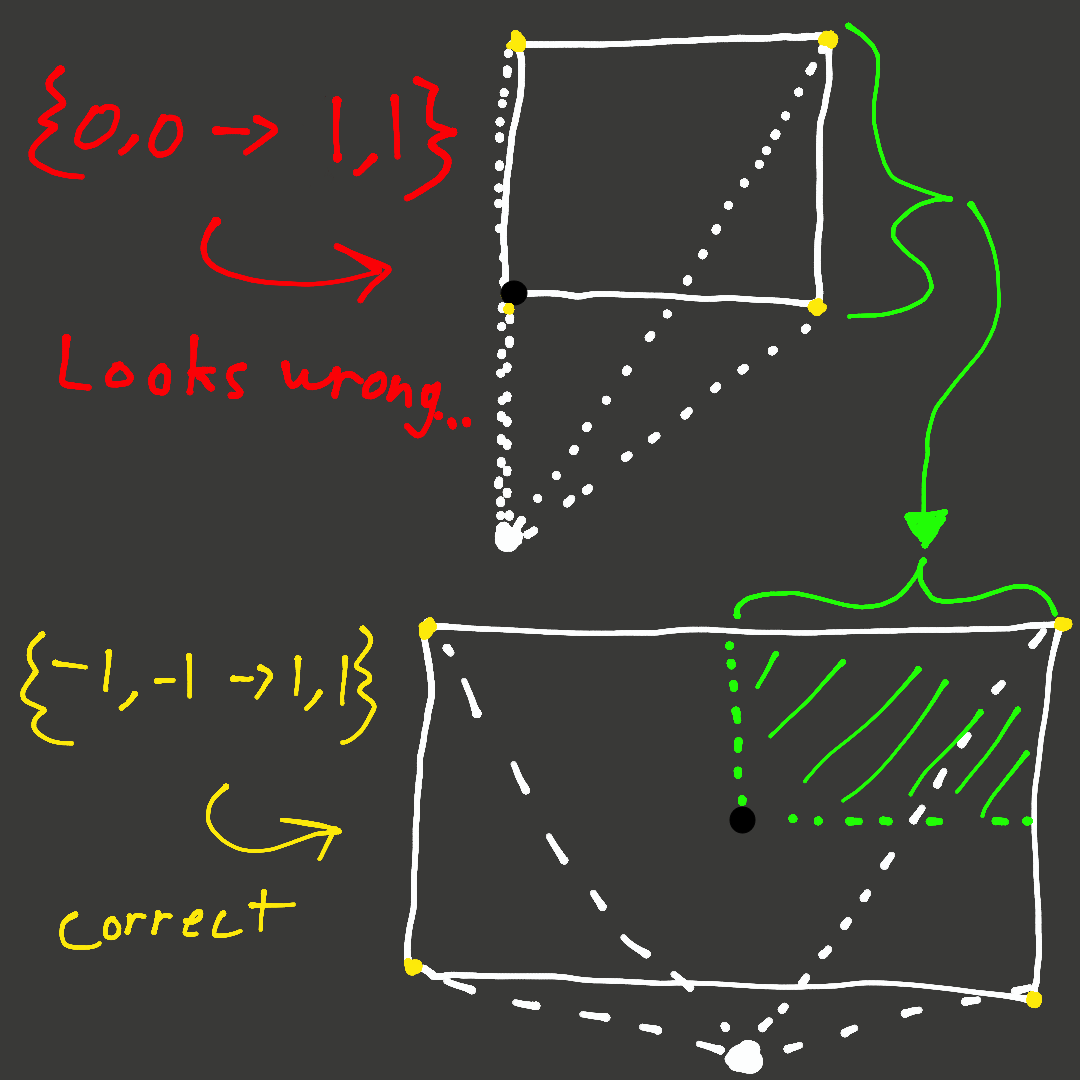 {0,0 → 1,1}
Looks wrong..
{-1,-1 → 1,1}
correct